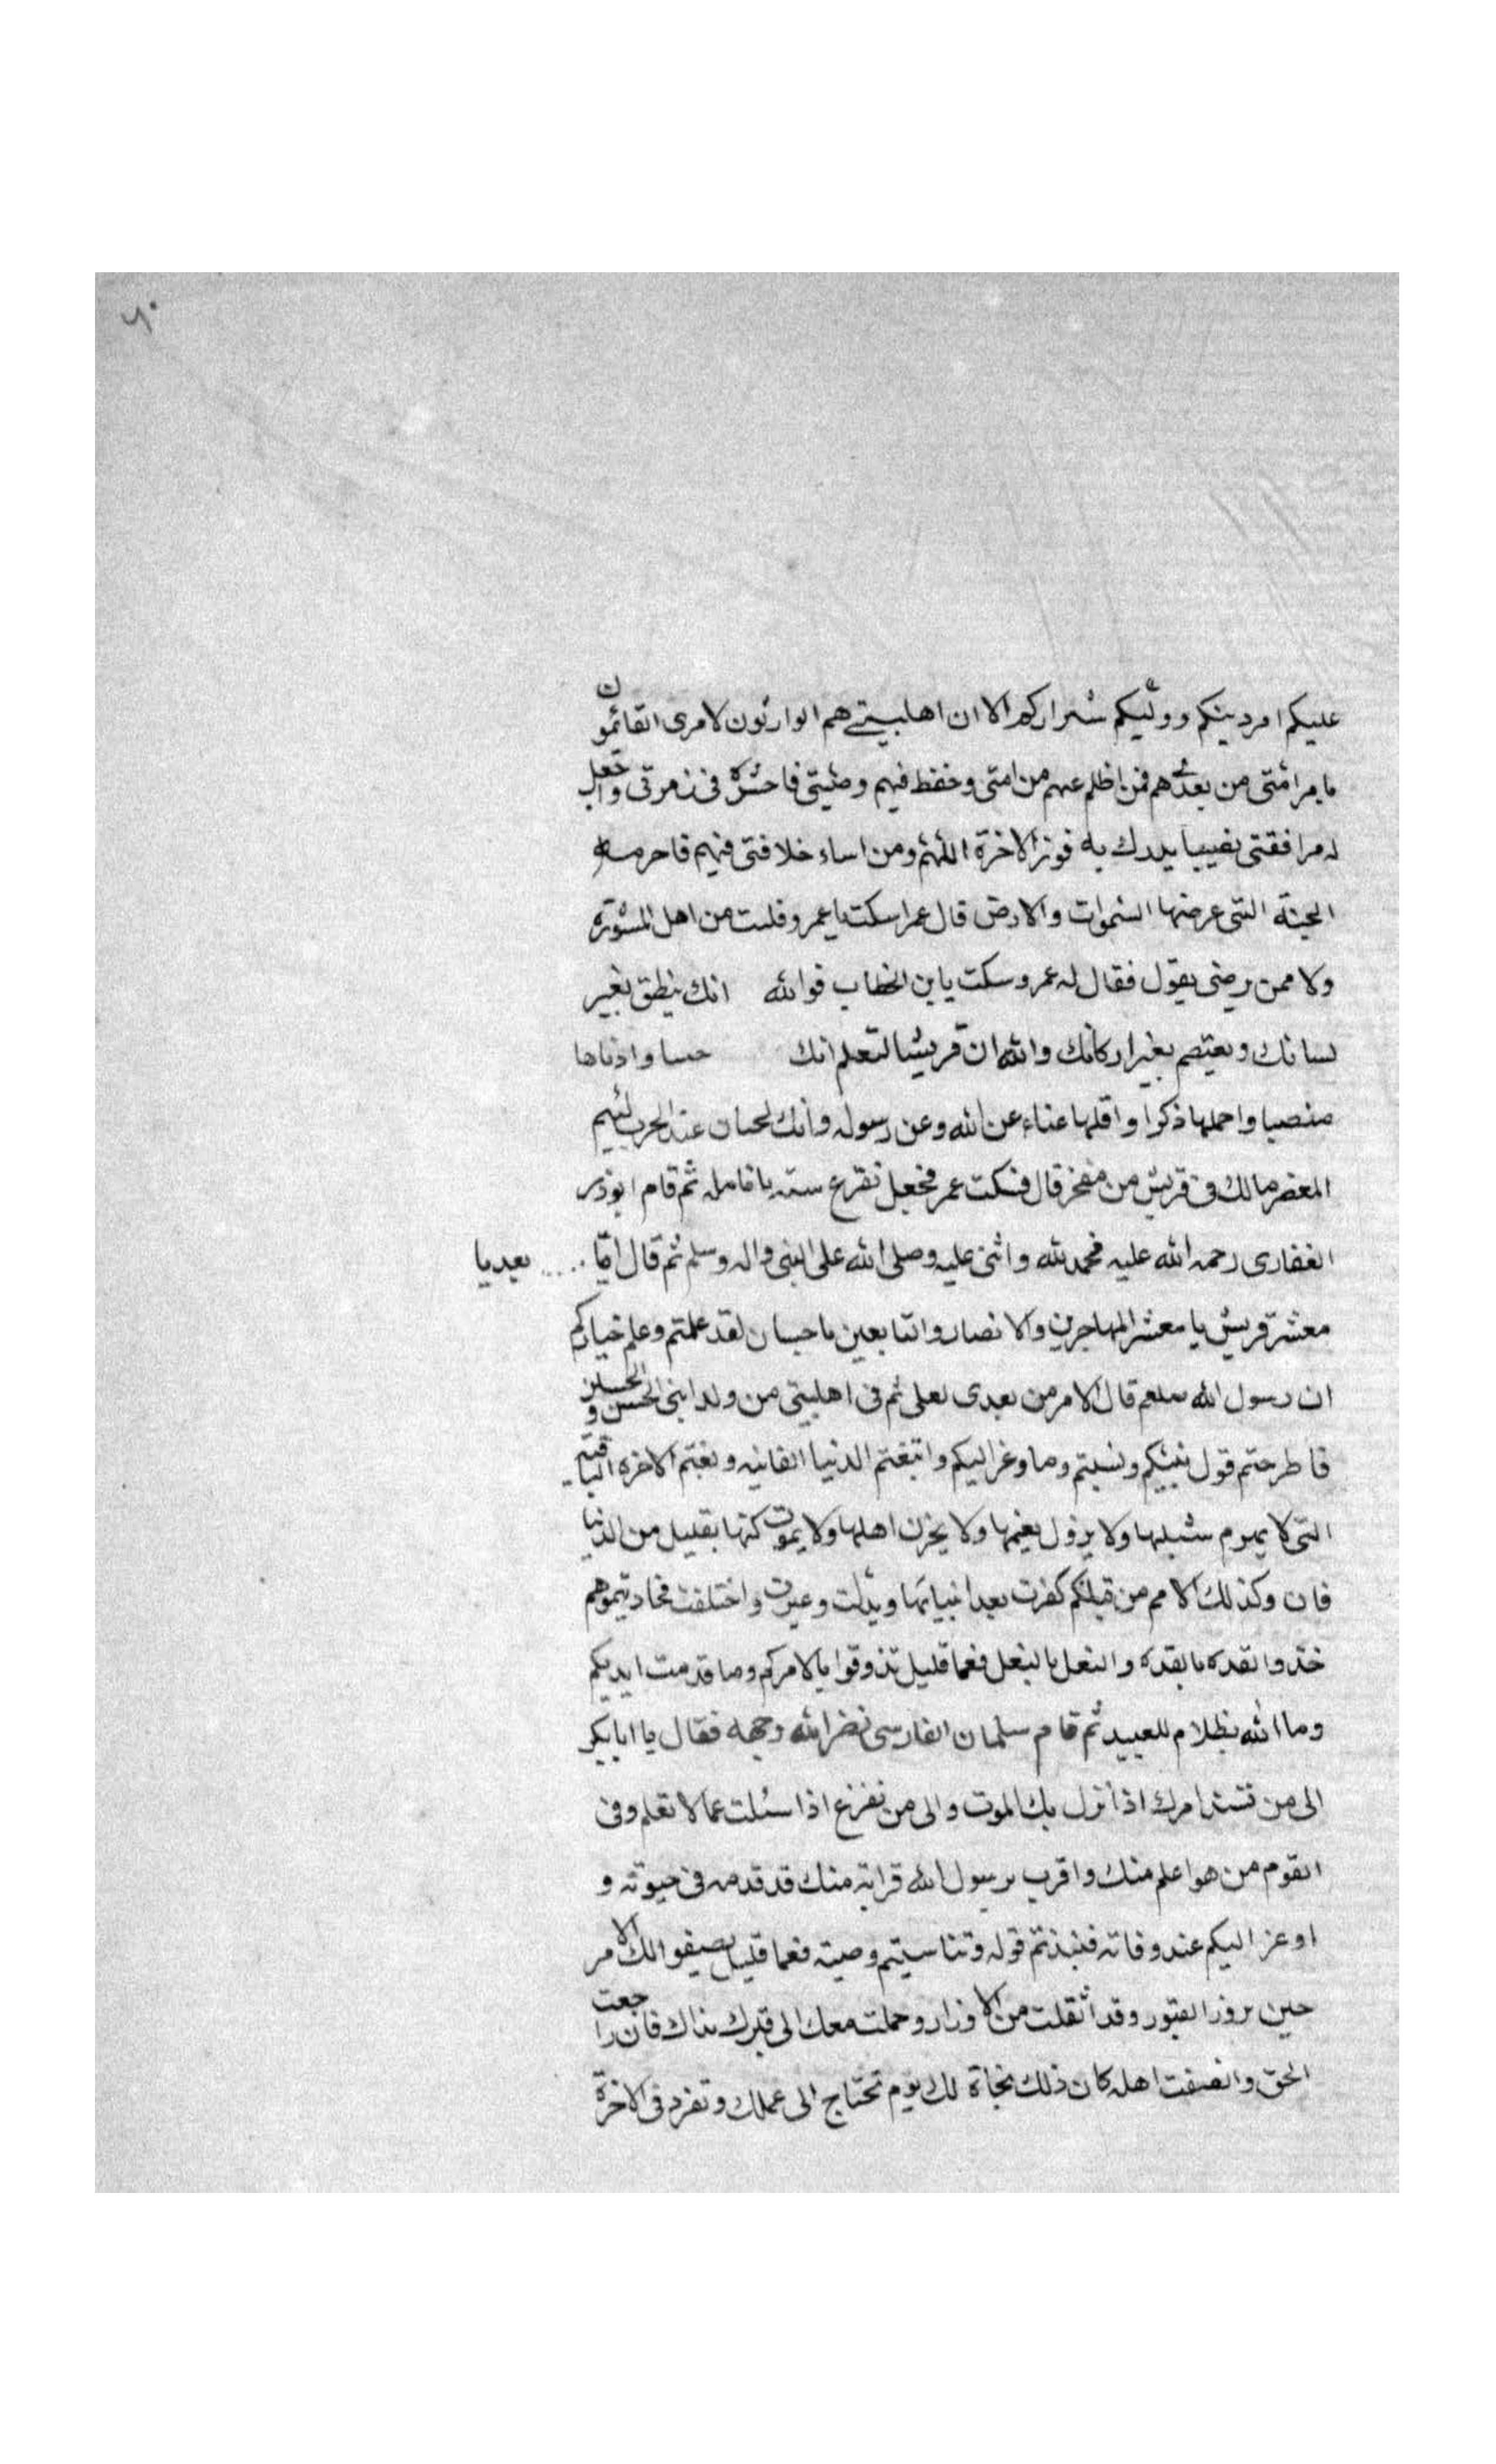 ٦٠
عليكم امر دينكم ووليكم شراركم الا ان اهلبيتي هم الوارثون لامرى القائمون
بامر امتى من بعدى هم فمن اظلم عهم من امتى وحفظ فيهم وصيتى فاحشره فى زمرتى واجعل
له مرافقتى نصيبا يدرك به فوز الاخرة اللهم ومن اساء خلافتى فيهم فاحرمه
الجنة التى عرضها السموات والارض قال عمر اسكت يا عمرو فلست من اهل المشورة
ولا ممن يرضى بقول فقال له عمرو سكت يا بن الخطاب فوالله انك ينطق بغير
لسانك ويعتصم بغير اركانك والله ان قريشا لتعلم انك حسبا وادناها
منصبا واحملها ذكرا واقلها عناء عن الله وعن رسوله وانك لجبان عند الحرب لئيم
العنصر مالك فى قريش من مفخر قال فسكت عمر فجعل نقرع سنه بانامله ثم قام ابوذر
الغفارى رحمه الله عليه فحمد لله واثنى عليه وصلى الله على النبى واله وسلم ثم قال اما ..... بعد يا
معشر قريش يا معشر المهاجرين والانصار والتابعين باحسان لقد علمتم وعلم خياركم
ان رسول الله صلعم قال الامر من بعدى لعلى ثم فى اهلبيتى من ولد ابنى الحسن والحسين
فاطرحتم قول نبيكم ونسيتم وما وغر اليكم واتبغتم الدنيا الفانيه ونغتم الاخره الباقية
التى لا يهرم شبلها ولا يزول نعيمها ولا يحزن اهلها ولا يموت كنها بقليل من الدنيا
فان وكذلك الامم من قبلكم كفرت بعد انبيائها وبدلت وغيرت واختلفت فحاديتموهم
خذوا لقده بالقده والنعل بالنعل فعما قليل تذوقوا بالامركم وما قدمت ايديكم
وما الله بظلام للعبيد ثم قام سلمان الفارسى نضر الله وجهه فقال يا ابا بكر
الى من تسند امرك اذا نزل بك الموت والى من تفزع اذا سئلت عما لا تعلم وفى
القوم من هو اعلم منك واقرب برسول الله قرابة منك قد قدمه فى حيوته و
اوعز اليكم عند وفاته فنبذتم قوله وتناسيتم وصيته فعما قليل يصيفوا لك الامر
حين بروز القبور وقد اثقلت من الاوزار وحملت معك الى قبرك بذاك فان راجعت
الحق وانصفت اهله كان ذلك نجاة لك يوم تحتاج الى عملك وتفرد فى الاخرة